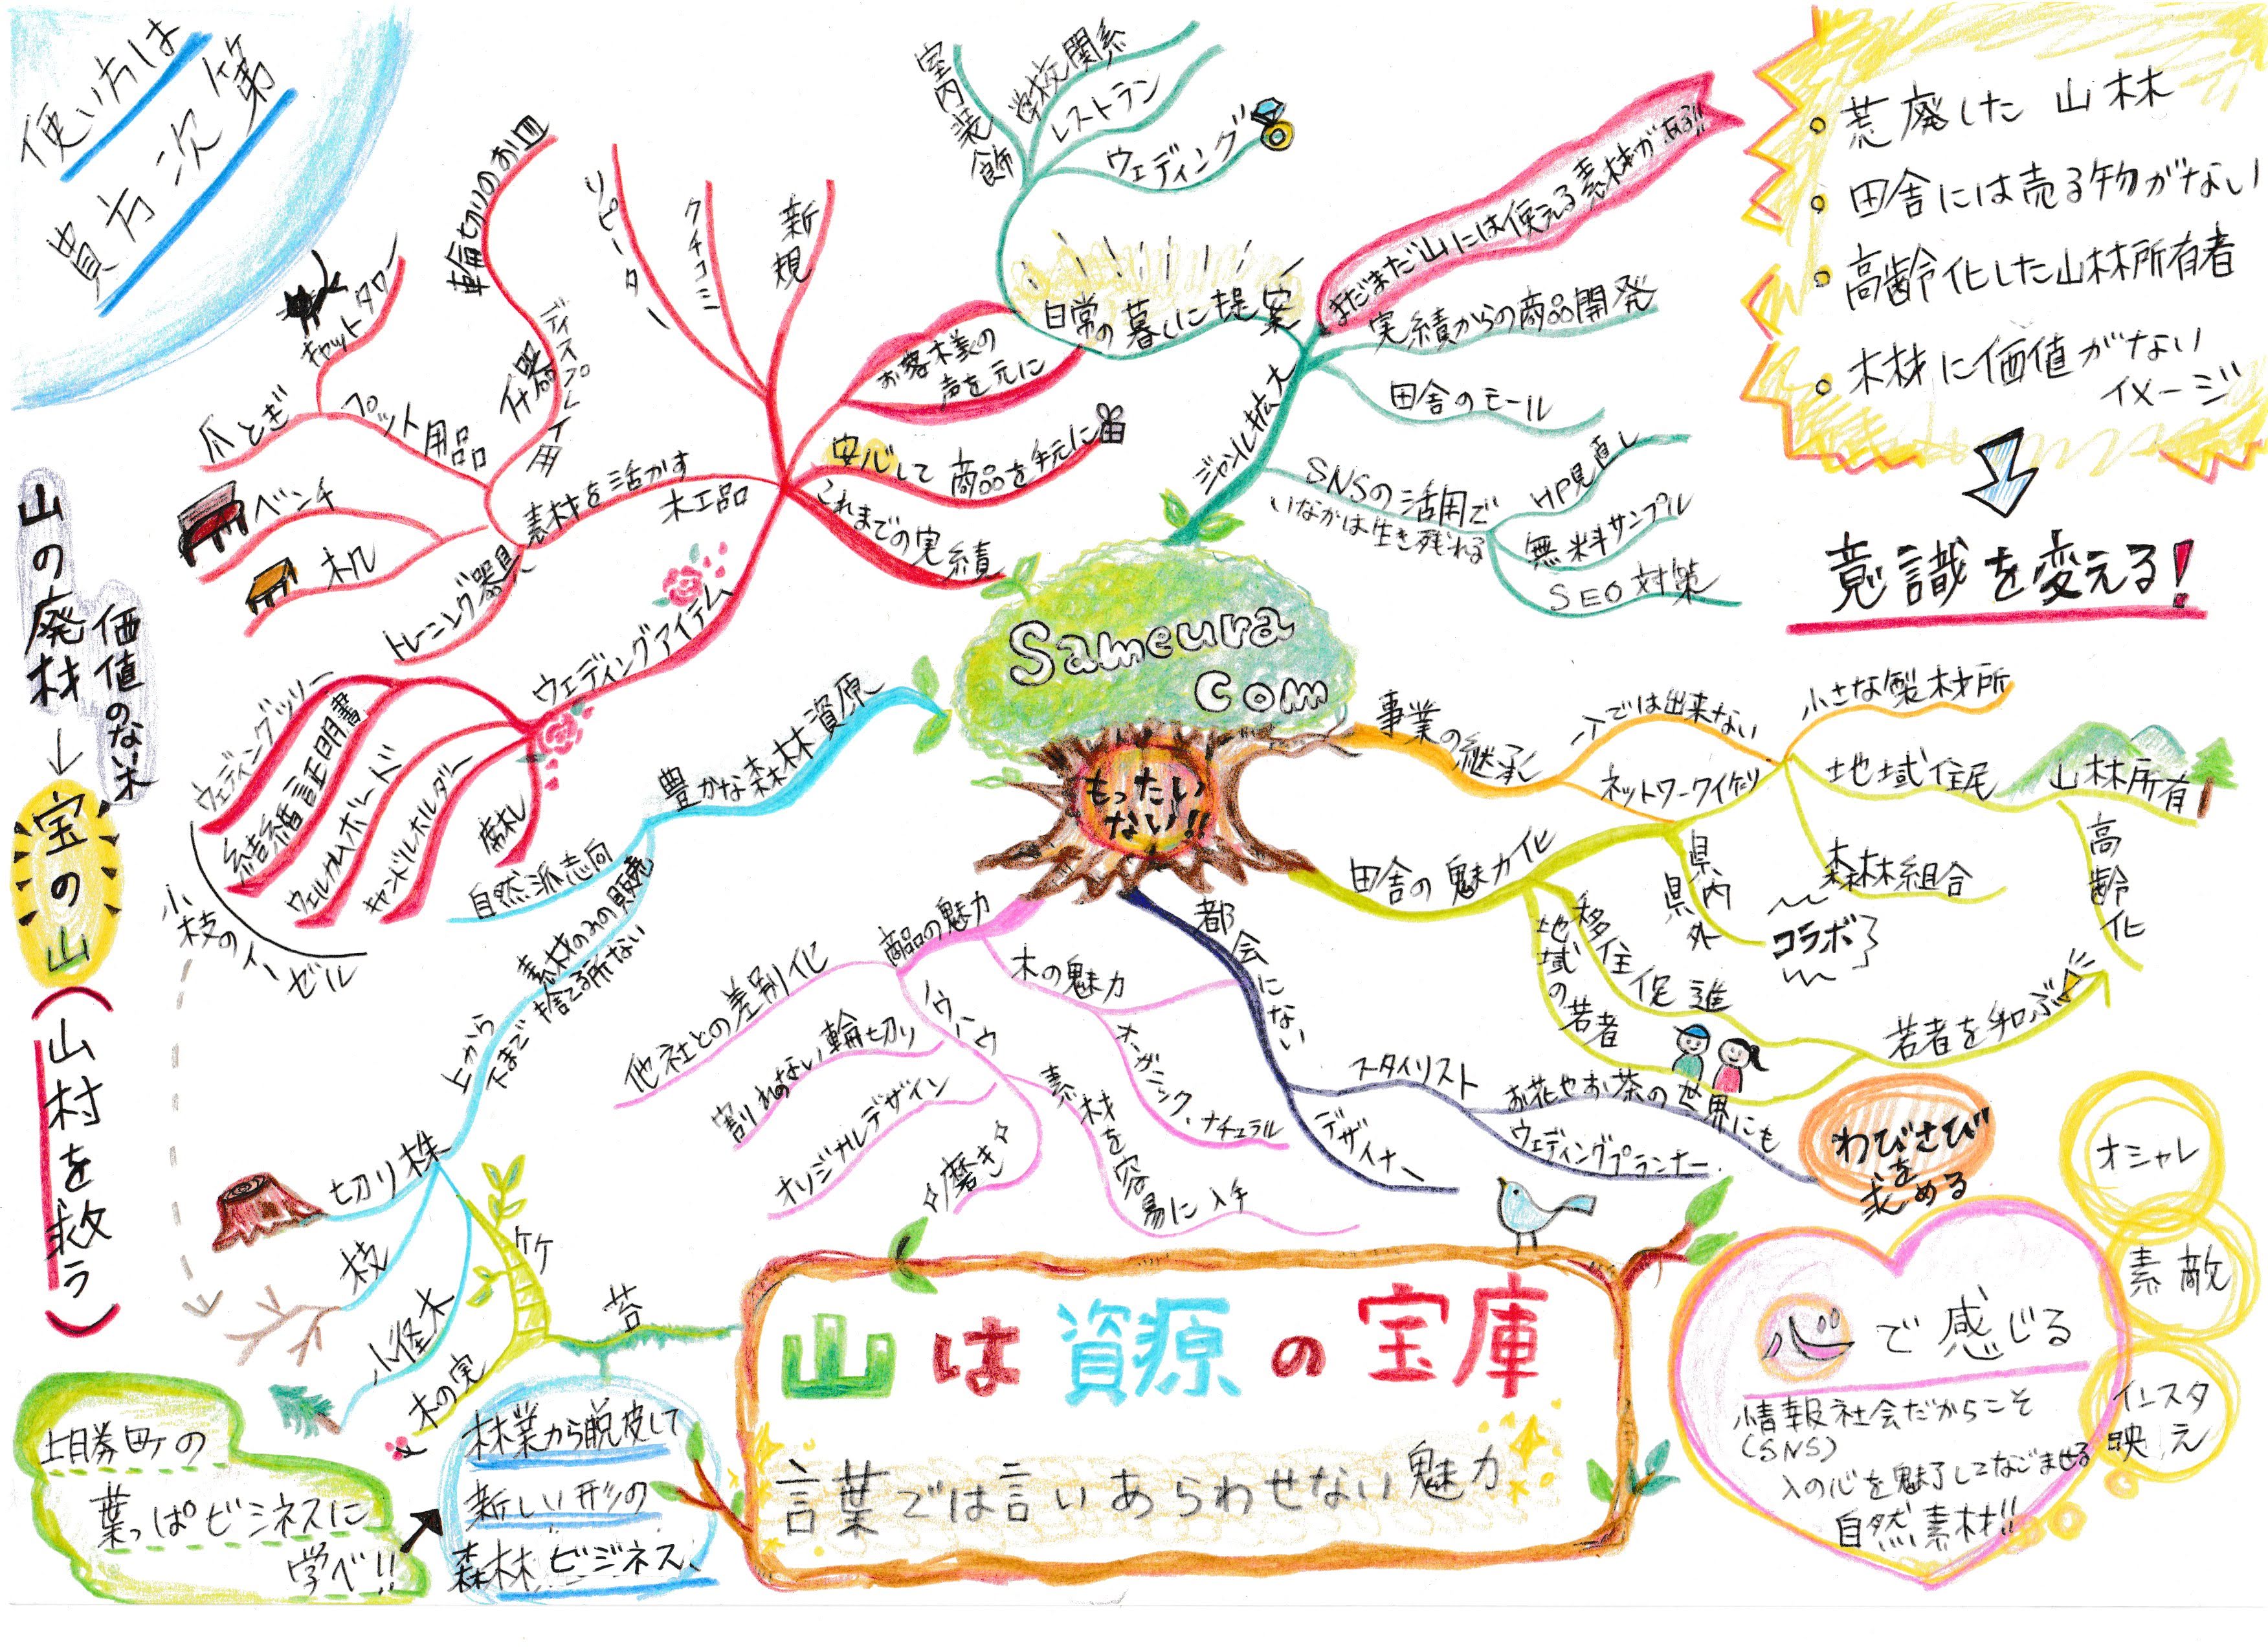 使い方は
貴方次第
山の廃材
価値のない木
↓
宝の山
(山村を救う)
荒廃した山林
田舎には売る物がない
高齢化した山林所有者
木材に価値がない
イメージ
意識を変える!
Sameura
com
もったい
ない!!
これまでの実績
安心して商品を手元に
お客様の
声を元に
新規
クチコミ
リピーター
素材を活かす
木工品
ディスプレイ用
什器
輪切りのお皿
ペット用品
キャットタワー
爪とぎ
ベンチ
トレーニング器具
ウェディングアイテム
ウェディングツリー
結婚証明書
ウェルカムボード
キャンドルホルダー
席札
小枝のイーゼル
ジャンル拡大
日常の暮しに提案
室内装飾
学校関係
レストラン
ウェディング
まだまだ山には使える素材がある!!
実績からの商品開発
田舎のモール
SNSの活用で
いなかは生き残れる
HP見直し
無料サンプル
SEO対策
事業の継承
一人では出来ない
ネットワーク作り
小さな製材所
地域住民
山林所有
高齢化
森林組合
田舎の魅力化
県内
県外
コラボ
移住促進
地域の若者
若者を呼ぶ
都会にない
スタイリスト
お花やお茶の世界にも
ウェディングプランナー
デザイナー
わびさび
を
求める
商品の魅力
木の魅力
オーガニック、ナチュラル
他社との差別化
ノウハウ
割れのない輪切り
オリジナルデザイン
磨き
素材を容易に入手
豊かな森林資源
自然派志向
素材のみの販売
捨てる所ない
上から
下まで
切り株
枝
小径木
木の実
竹
苔
上勝町の
葉っぱビジネスに
学べ!!
林業から脱皮して
新しい形の
森林ビジネス
山は資源の宝庫
言葉では言いあらわせない魅力
心で感じる
情報社会だからこそ
(SNS)
人の心を魅了してなごませる
自然素材!!
オシャレ
素敵
インスタ
映え